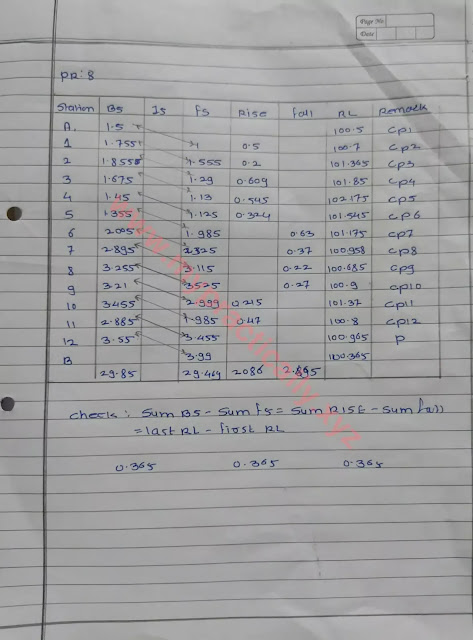 Page No
Date
PR:8
Station BS IS FS Rise fall RL Remark
A. 1.5 100.5 CP1
1 1.755 1 0.5 100.7 CP2
2 1.8555 1.555 0.2 101.365 CP3
3 1.675 1.29 0.609 101.85 CP4
4 1.45 1.13 0.545 102.175 CP5
5 1.355 1.125 0.324 101.545 CP6
6 2.005 1.985 0.63 101.175 CP7
7 2.895 2.325 0.37 100.958 CP8
8 3.255 3.115 0.22 100.685 CP9
9 3.21 3.525 0.27 100.9 CP10
10 3.455 2.999 0.215 101.37 CP11
11 2.885 1.985 0.47 100.8 CP12
12 3.55 3.455 100.965 P
B 3.99 100.365
29.85 29.469 2086 2.865
check: Sum BS - Sum fS = Sum RISE - Sum fall
= last RL - first RL
0.365 0.365 0.365